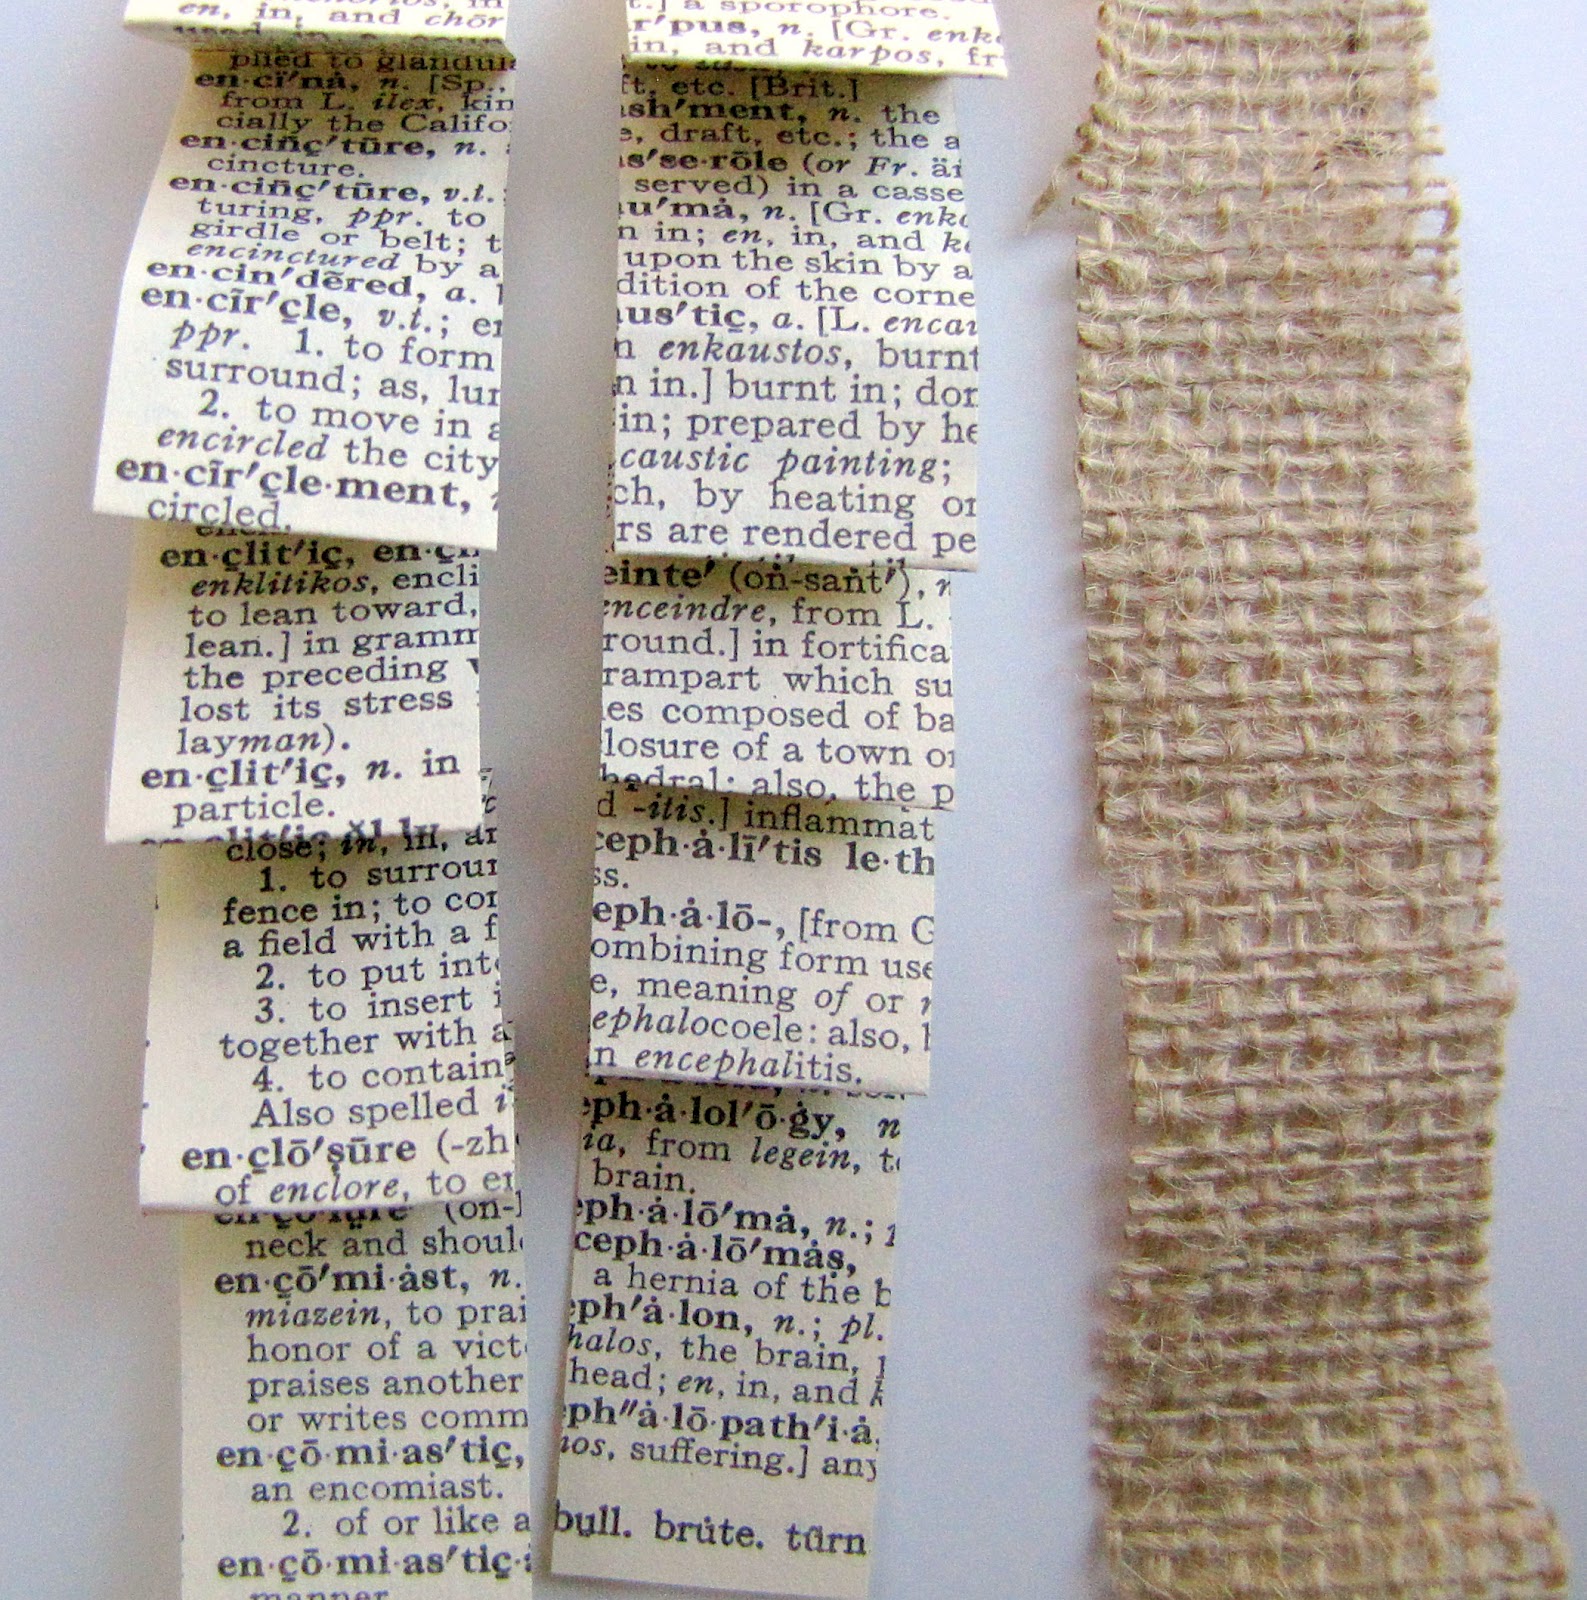 en, in, and chōr
plied to glandul
en·cï'nȧ, n. [Sp.,
from L. ilex, kin
cially the Califo
en·ciñç'tūre, n.
cincture.
en·ciñç'tūre, v.t.
turing, ppr. to
girdle or belt; t
encinctured by a
en·cin'dẽred, a.
en·cĩr'çle, v.t.; en
ppr. 1. to form
surround; as, lun
2. to move in a
encircled the city
en·cĩr'çle·ment,
circled.
en·çlit'iç, en·çl
enklitikos, encli
to lean toward,
lean.] in gramm
the preceding
lost its stress
layman).
en·çlit'iç, n. in
particle.
close; in, in, an
1. to surroun
fence in; to con
a field with a f
2. to put int
3. to insert
together with a
4. to contain
Also spelled i
en·çlō'ṣūre (-zh
of enclore, to en
(on-
neck and shoul
en·çō'mi·ȧst, n.
miazein, to prai
honor of a vict
praises another
or writes comm
en·çō·mi·as'tiç,
an encomiast.
2. of or like a
en·çō·mi·as'tiç·
manner
t.] a sporophore.
r'pus, n. [Gr. enk
in, and karpos, fr
ft, etc. [Brit.]
ash'ment, n. the
e, draft, etc.; the a
as'se·rōle (or Fr. äi
served) in a casse
au'mȧ, n. [Gr. enk
n in; en, in, and k
upon the skin by a
dition of the corne
aus'tiç, a. [L. encau
n enkaustos, burnt
n in.] burnt in; don
in; prepared by he
caustic painting;
ch, by heating or
rs are rendered pe
einte' (oṅ-saṅt'), n
enceindre, from L.
round.] in fortifica
rampart which su
les composed of ba
closure of a town or
hedral; also, the p
d -itis.] inflammat
ceph·ȧ·lī'tis le·th
ss.
eph·ȧ·lō-, [from G
ombining form use
e, meaning of or
ephalocoele: also,
n encephalitis.
eph·ȧ·lol'ō·ġy, n
ia, from legein, t
brain.
eph·ȧ·lō'mȧ, n.;
ceph·ȧ·lō'mȧs,
a hernia of the b
eph'ȧ·lon, n.; pl.
halos, the brain,
head; en, in, and k
eph"ȧ·lō·path'i·ȧ
hos, suffering.] any
bull. brụte. tũrn